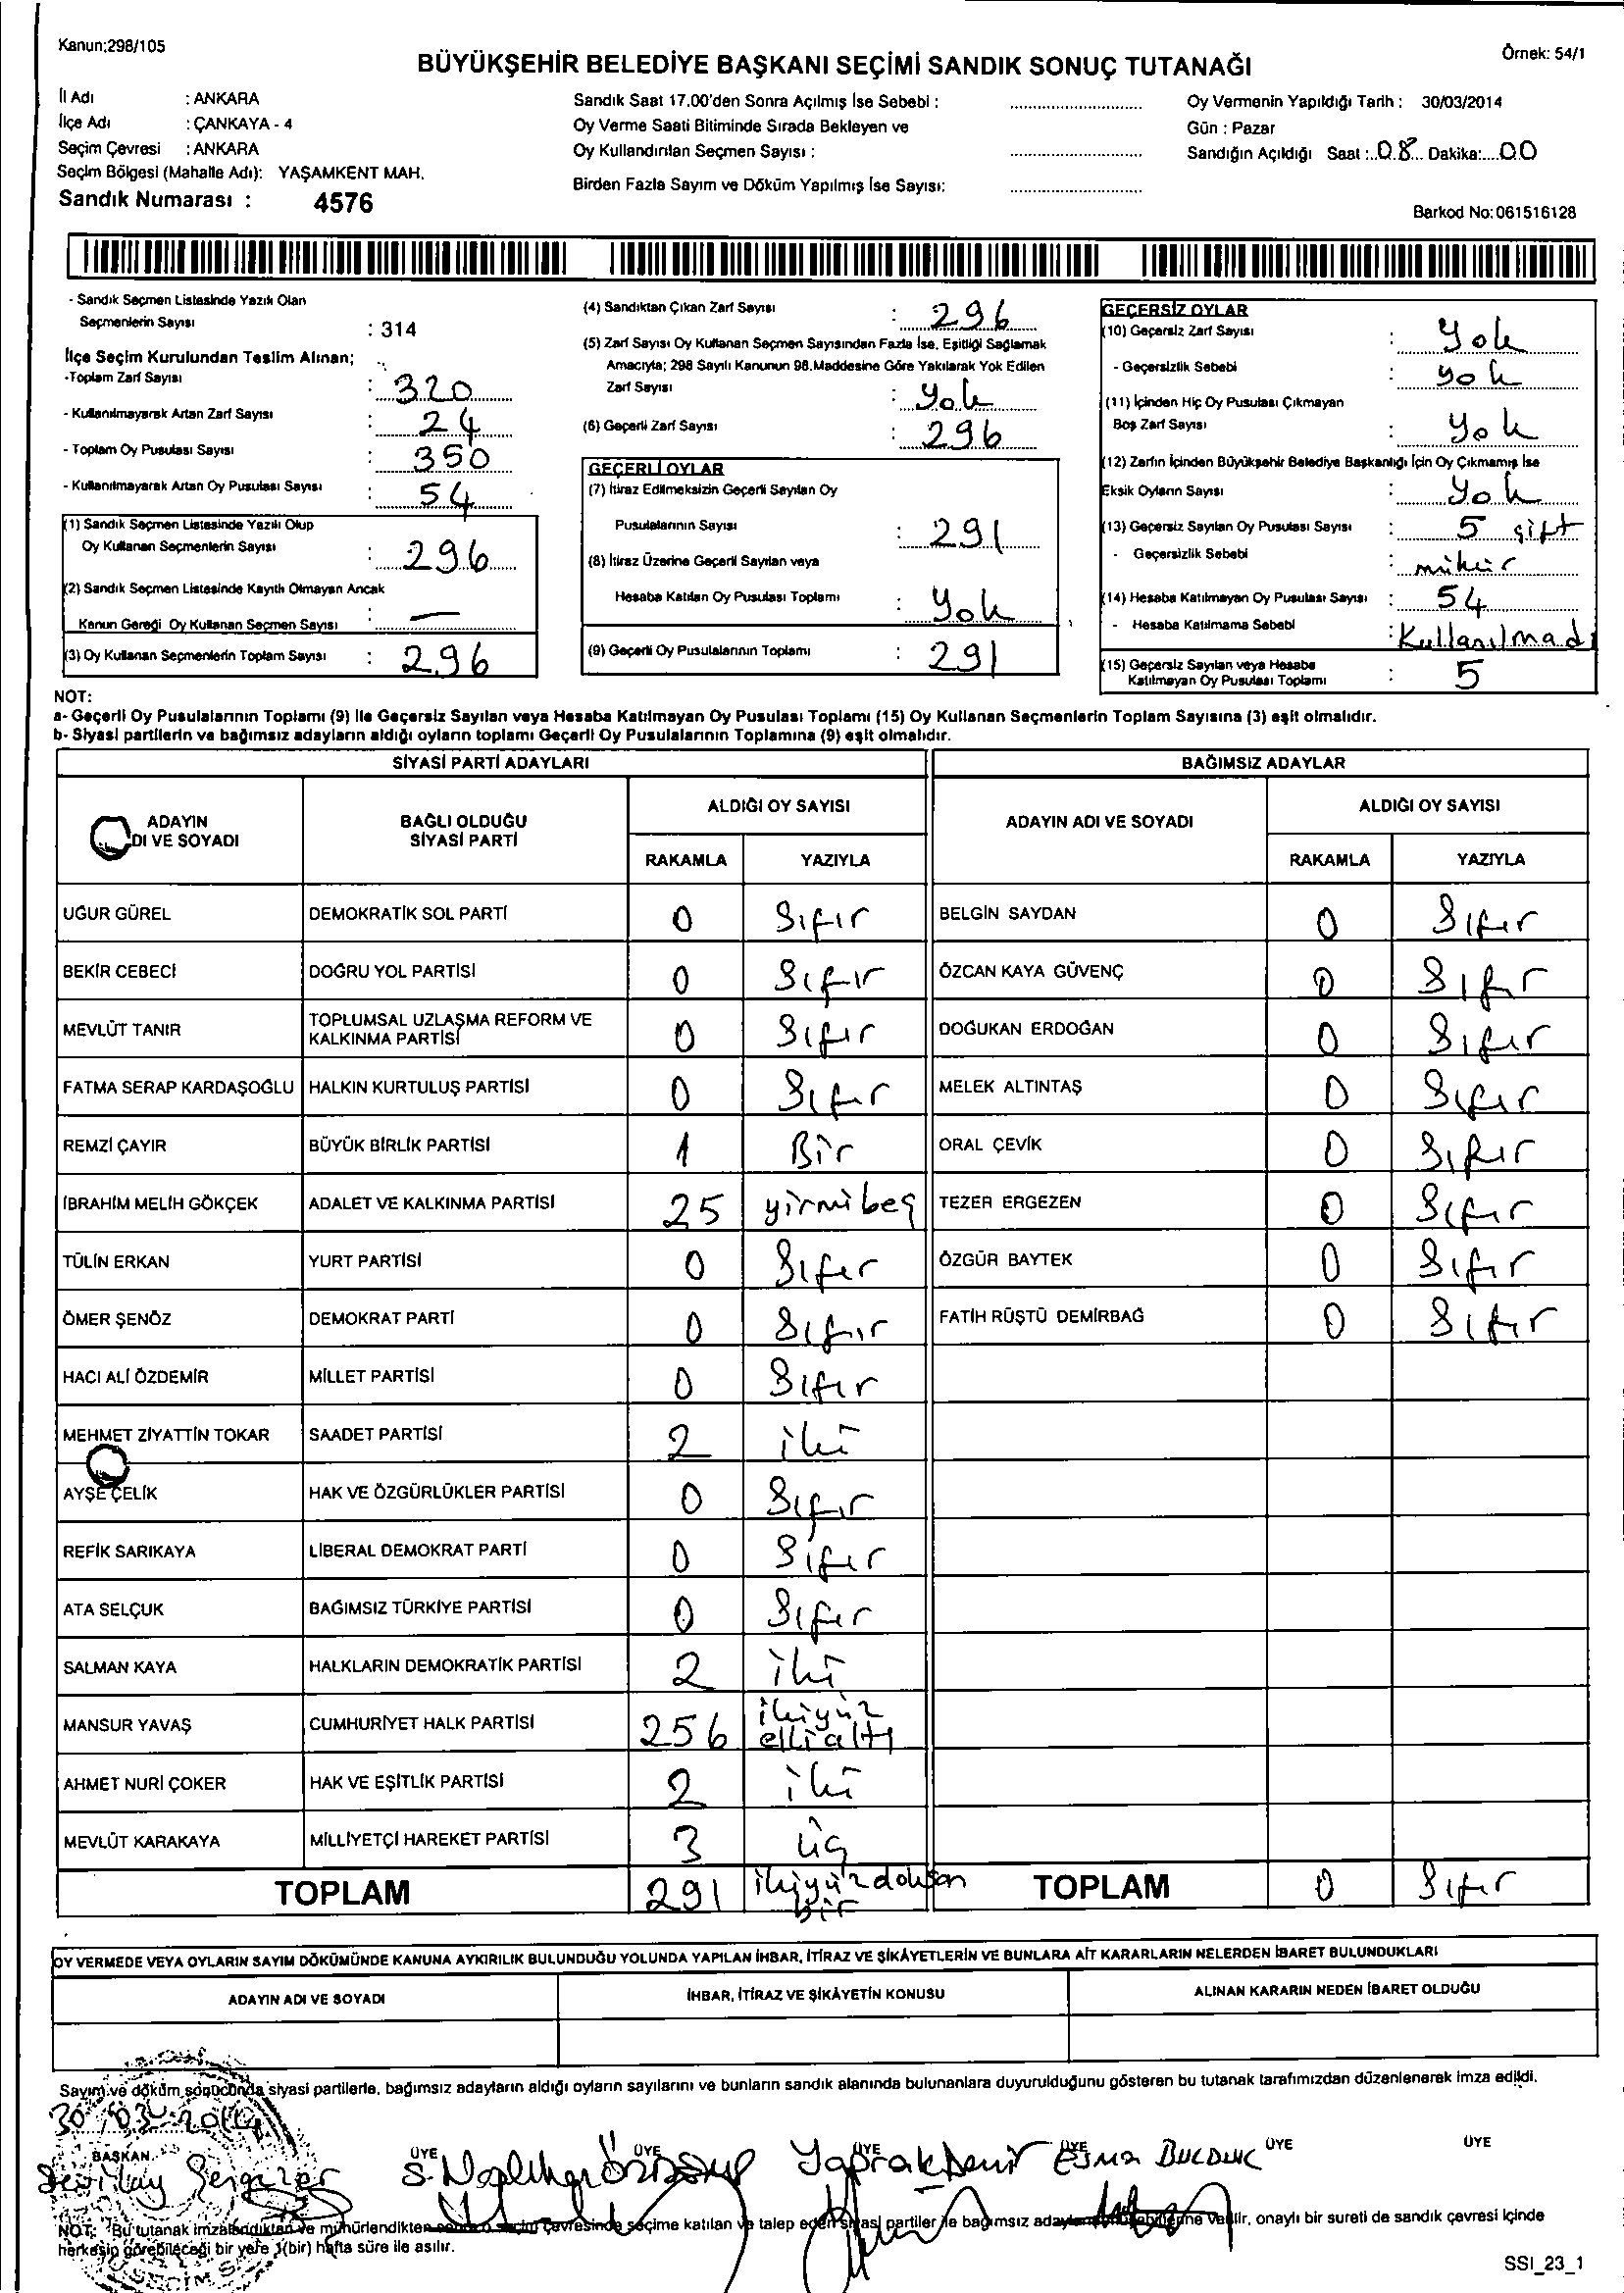 Kanun;298/105
Örnek: 54/1
BÜYÜKŞEHİR BELEDİYE BAŞKANI SEÇİMİ SANDIK SONUÇ TUTANAĞI
İl Adı : ANKARA
İlçe Adı : ÇANKAYA - 4
Seçim Çevresi : ANKARA
Seçim Bölgesi (Mahalle Adı): YAŞAMKENT MAH.
Sandık Numarası : 4576
Sandık Saat 17.00'den Sonra Açılmış İse Sebebi :
Oy Verme Saati Bitiminde Sırada Bekleyen ve
Oy Kullandırılan Seçmen Sayısı :
Birden Fazla Sayım ve Döküm Yapılmış İse Sayısı:
Oy Vermenin Yapıldığı Tarih : 30/03/2014
Gün : Pazar
Sandığın Açıldığı Saat : 08 Dakika: 00
Barkod No: 061516128
- Sandık Seçmen Listesinde Yazılı Olan
Seçmenlerin Sayısı : 314
İlçe Seçim Kurulundan Teslim Alınan;
-Toplam Zarf Sayısı : 320
- Kullanılmayarak Artan Zarf Sayısı : 24
- Toplam Oy Pusulası Sayısı : 350
- Kullanılmayarak Artan Oy Pusulası Sayısı : 54
(1) Sandık Seçmen Listesinde Yazılı Olup
Oy Kullanan Seçmenlerin Sayısı : 296
(2) Sandık Seçmen Listesinde Kayıtlı Olmayan Ancak
Kanun Gereği Oy Kullanan Seçmen Sayısı : —
(3) Oy Kullanan Seçmenlerin Toplam Sayısı : 296
(4) Sandıktan Çıkan Zarf Sayısı : 296
(5) Zarf Sayısı Oy Kullanan Seçmen Sayısından Fazla İse, Eşitliği Sağlamak
Amacıyla; 298 Sayılı Kanunun 98.Maddesine Göre Yakılarak Yok Edilen
Zarf Sayısı : Yok
(6) Geçerli Zarf Sayısı : 296
GEÇERLİ OYLAR
(7) İtiraz Edilmeksizin Geçerli Sayılan Oy
Pusulalarının Sayısı : 291
(8) İtiraz Üzerine Geçerli Sayılan veya
Hesaba Katılan Oy Pusulası Toplamı : Yok
(9) Geçerli Oy Pusulalarının Toplamı : 291
GEÇERSİZ OYLAR
(10) Geçersiz Zarf Sayısı : Yok
- Geçersizlik Sebebi : yok
(11) İçinden Hiç Oy Pusulası Çıkmayan
Boş Zarf Sayısı : Yok
(12) Zarfın İçinden Büyükşehir Belediye Başkanlığı İçin Oy Çıkmamış İse
Eksik Oyların Sayısı : Yok
(13) Geçersiz Sayılan Oy Pusulası Sayısı : 5 çift
- Geçersizlik Sebebi : mühür
(14) Hesaba Katılmayan Oy Pusulası Sayısı : 54
- Hesaba Katılmama Sebebi : Kullanılmadı
(15) Geçersiz Sayılan veya Hesaba
Katılmayan Oy Pusulası Toplamı : 5
NOT:
a- Geçerli Oy Pusulalarının Toplamı (9) ile Geçersiz Sayılan veya Hesaba Katılmayan Oy Pusulası Toplamı (15) Oy Kullanan Seçmenlerin Toplam Sayısına (3) eşit olmalıdır.
b- Siyasi partilerin ve bağımsız adayların aldığı oyların toplamı Geçerli Oy Pusulalarının Toplamına (9) eşit olmalıdır.
SİYASİ PARTİ ADAYLARI
BAĞIMSIZ ADAYLAR
ADAYIN
DI VE SOYADI
BAĞLI OLDUĞU
SİYASİ PARTİ
ALDIĞI OY SAYISI
RAKAMLA YAZIYLA
ADAYIN ADI VE SOYADI
ALDIĞI OY SAYISI
RAKAMLA YAZIYLA
UĞUR GÜREL DEMOKRATİK SOL PARTİ 0 Sıfır BELGİN SAYDAN 0 Sıfır
BEKİR CEBECİ DOĞRU YOL PARTİSİ 0 Sıfır ÖZCAN KAYA GÜVENÇ 0 Sıfır
MEVLÜT TANIR TOPLUMSAL UZLAŞMA REFORM VE KALKINMA PARTİSİ 0 Sıfır DOĞUKAN ERDOĞAN 0 Sıfır
FATMA SERAP KARDAŞOĞLU HALKIN KURTULUŞ PARTİSİ 0 Sıfır MELEK ALTINTAŞ 0 Sıfır
REMZİ ÇAYIR BÜYÜK BİRLİK PARTİSİ 1 Bir ORAL ÇEVİK 0 Sıfır
İBRAHİM MELİH GÖKÇEK ADALET VE KALKINMA PARTİSİ 25 yirmibeş TEZER ERGEZEN 0 Sıfır
TÜLİN ERKAN YURT PARTİSİ 0 Sıfır ÖZGÜR BAYTEK 0 Sıfır
ÖMER ŞENÖZ DEMOKRAT PARTİ 0 Sıfır FATİH RÜŞTÜ DEMİRBAĞ 0 Sıfır
HACI ALİ ÖZDEMİR MİLLET PARTİSİ 0 Sıfır
MEHMET ZİYATTİN TOKAR SAADET PARTİSİ 2 iki
AYŞE ÇELİK HAK VE ÖZGÜRLÜKLER PARTİSİ 0 Sıfır
REFİK SARIKAYA LİBERAL DEMOKRAT PARTİ 0 Sıfır
ATA SELÇUK BAĞIMSIZ TÜRKİYE PARTİSİ 0 Sıfır
SALMAN KAYA HALKLARIN DEMOKRATİK PARTİSİ 2 iki
MANSUR YAVAŞ CUMHURİYET HALK PARTİSİ 256 ikiyüz elli altı
AHMET NURİ ÇOKER HAK VE EŞİTLİK PARTİSİ 2 iki
MEVLÜT KARAKAYA MİLLİYETÇİ HAREKET PARTİSİ 3 üç
TOPLAM 291 ikiyüzdoksan bir TOPLAM 0 Sıfır
OY VERMEDE VEYA OYLARIN SAYIM DÖKÜMÜNDE KANUNA AYKIRILIK BULUNDUĞU YOLUNDA YAPILAN İHBAR, İTİRAZ VE ŞİKÂYETLERİN VE BUNLARA AİT KARARLARIN NELERDEN İBARET BULUNDUKLARI
ADAYIN ADI VE SOYADI İHBAR, İTİRAZ VE ŞİKÂYETİN KONUSU ALINAN KARARIN NEDEN İBARET OLDUĞU
Sayım ve döküm sonucunda siyasi partilerle, bağımsız adayların aldığı oyların sayılarını ve bunların sandık alanında bulunanlara duyurulduğunu gösteren bu tutanak tarafımızdan düzenlenerek imza edildi.
30/03/2014
BAŞKAN ÜYE ÜYE ÜYE ÜYE ÜYE ÜYE
Yaprak Demir Esma BULDUK
NOT: Bu tutanak imzalandıktan ve mühürlendikten sonra o seçim çevresinde seçime katılan ve talep eden siyasi partiler ile bağımsız adayların verilir, onaylı bir sureti de sandık çevresi içinde
herkesin görebileceği bir yere (bir) hafta süre ile asılır.
SSI_23_1